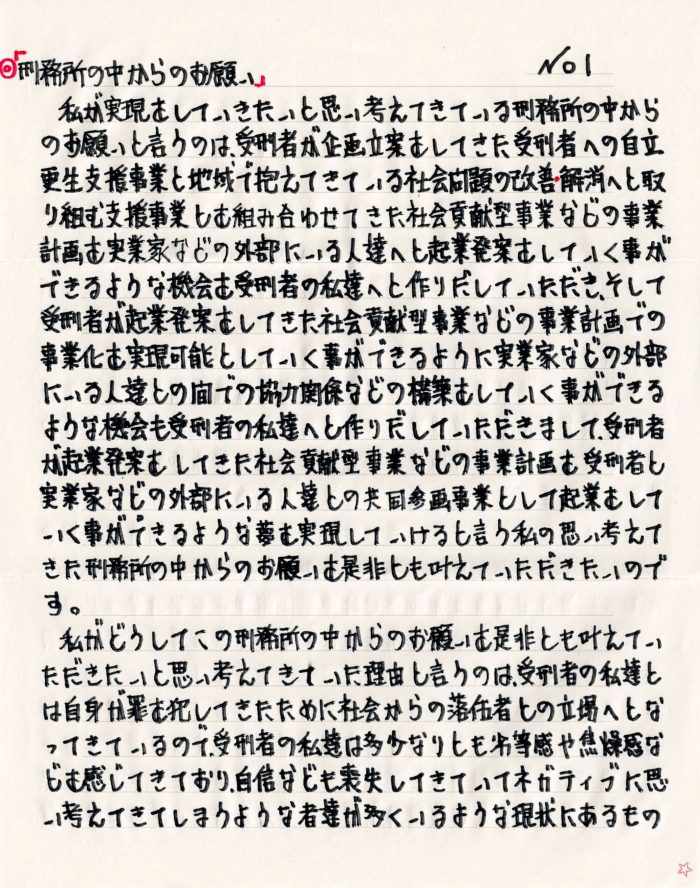 ◎「刑務所の中からのお願い」 No1
私が実現をしていきたいと思い考えてきている刑務所の中から
のお願いと言うのは、受刑者が企画立案をしてきた受刑者への自立
更生支援事業と地域で抱えてきている社会問題の改善・解消へと取
り組む支援事業とを組み合わせてきた社会貢献型事業などの事業
計画を実業家などの外部にいる人達へと起業発案をしていく事が
できるような機会を受刑者の私達へと作りだしていただき、そして
受刑者が起業発案をしてきた社会貢献型事業などの事業計画での
事業化を実現可能としていく事ができるように実業家などの外部
にいる人達との間での協力関係などの構築をしていく事ができる
ような機会も受刑者の私達へと作りだしていただきまして、受刑者
が起業発案をしてきた社会貢献型事業などの事業計画を受刑者と
実業家などの外部にいる人達との共同参画事業として起業をして
いく事ができるような夢を実現していけると言う私の思い考えて
きた刑務所の中からのお願いを是非とも叶えていただきたいので
す。
私がどうしてこの刑務所の中からのお願いを是非とも叶えてい
ただきたいと思い考えてきていた理由と言うのは、受刑者の私達と
は自身が罪を犯してきたために社会からの落伍者との立場へとな
ってきているので、受刑者の私達は多少なりとも劣等感や焦燥感な
どを感じてきており、自信なども喪失してきていてネガティブに思
い考えてきてしまうような者達が多くいるような現状にあるもの